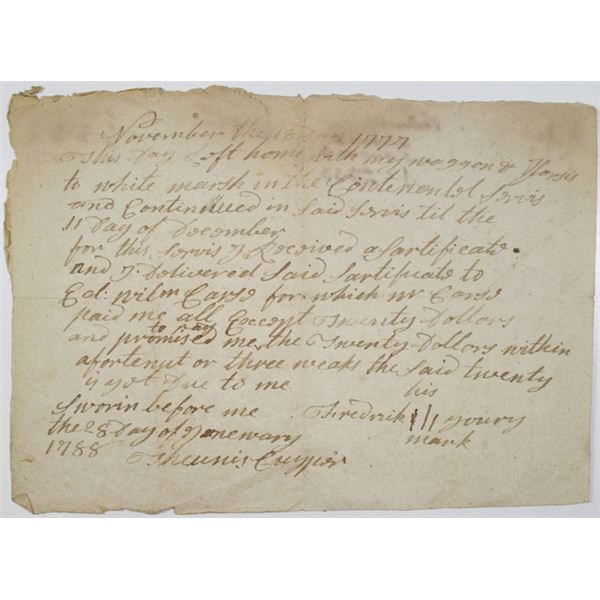 November the 18 Day 1777
This Day I Left home with my waggon & Horsis
to white marsh in the Continentel Servis
and Continnued in Said Servis til the
11 Day of December
for this Servis I Received a Sartificate
and I Delivered Said Sartificate to
Col: wilm Carsd for which mr Carsd
paid me all Except Twenty Dollors
and promised me to pay the Twenty Dollors within
a fortenut or three weaks the Said twenty
is yet Due to me
Sworin before me Fredrik his ||| youry
the 28 Day of Jenewary mark
1788 Theunis Cuyper